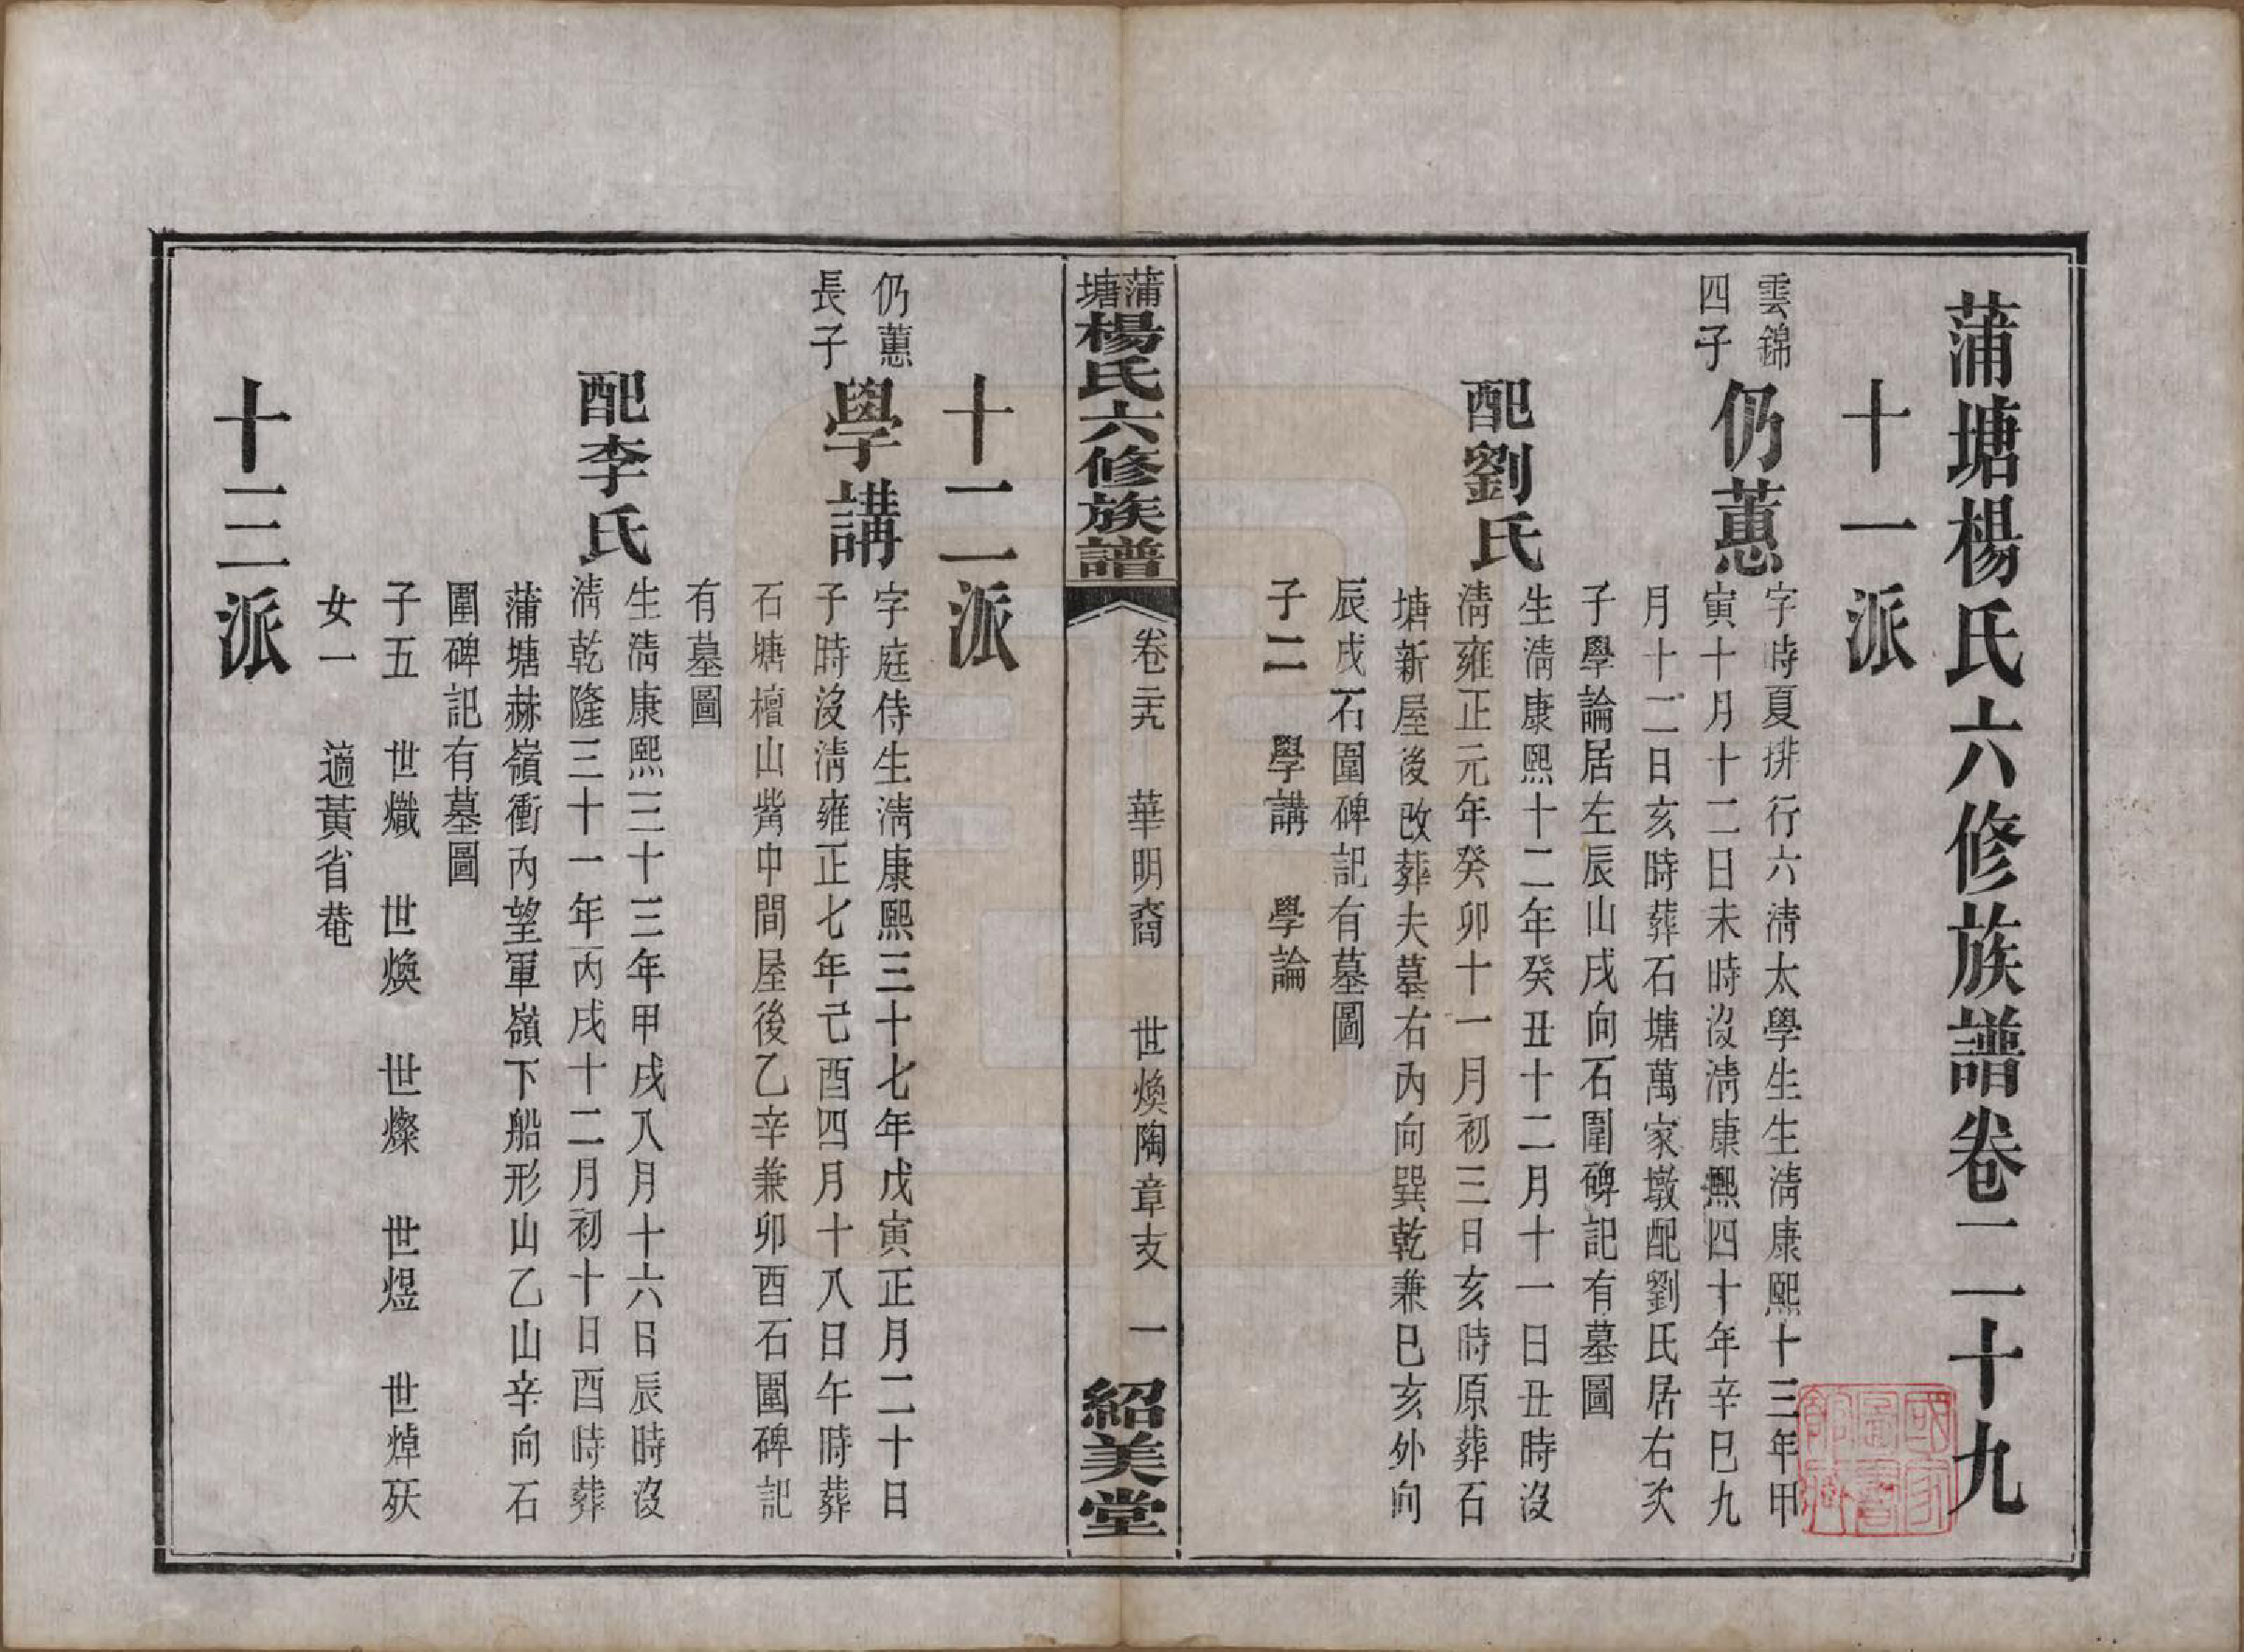 蒲塘楊氏六修族譜卷二十九
十一派
雲錦
四子
仍蕙
字時夏排行六淸太學生生淸康熙十三年甲
寅十月十二日未時沒淸康熙四十年辛巳九
月十二日亥時葬石塘萬家墩配劉氏居右次
子學論居左辰山戌向石圍碑記有墓圖
配劉氏
生淸康熙十二年癸丑十二月十一日丑時沒
淸雍正元年癸卯十一月初三日亥時原葬石
塘新屋後改葬夫墓右內向巽乾兼巳亥外向
辰戌石圍碑記有墓圖
子二 學講 學論
蒲塘楊氏六修族譜 卷二十九 華明裔 世煥陶章支 一 紹美堂
十二派
仍蕙
長子
學講
字庭侍生淸康熙三十七年戊寅正月二十日
子時沒淸雍正七年己酉四月十八日午時葬
石塘檀山觜中間屋後乙辛兼卯酉石圍碑記
有墓圖
配李氏
生淸康熙三十三年甲戌八月十六日辰時沒
淸乾隆三十一年丙戌十二月初十日酉時葬
蒲塘赫嶺衝內望軍嶺下船形山乙山辛向石
圍碑記有墓圖
子五 世熾 世煥 世燦 世煜 世焯殀
女一 適黃省菴
十三派